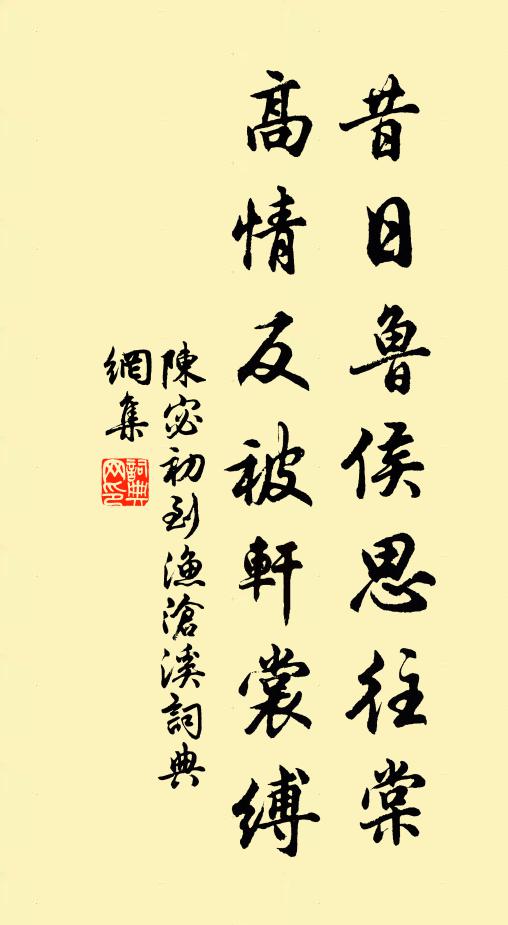 昔日魯侯思往棠
高情反被軒裳縛
陳宓初到漁滄溪詞典
網集
詞典網印